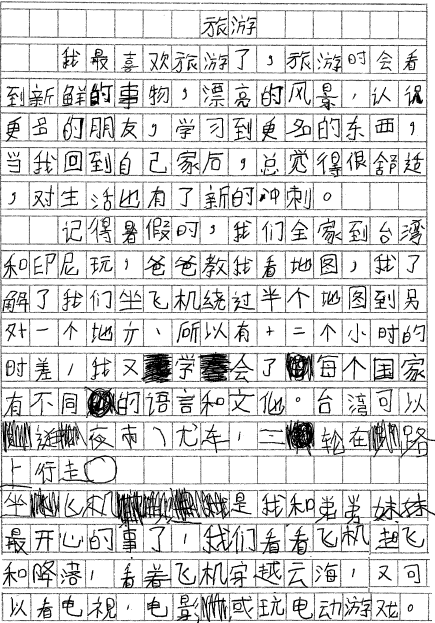 旅游
我最喜欢旅游了，旅游时会看
到新鲜的事物，漂亮的风景，认识
更多的朋友，学习到更多的东西，
当我回到自己家后，总觉得很舒适
，对生活也有了新的冲刺。
记得暑假时，我们全家到台湾
和印尼玩，爸爸教我看地图，我了
解了我们坐飞机绕过半个地图到另
外一个地方、所以有十二个小时的
时差，我又学会了每个国家
有不同的语言和文化。台湾可以
逛夜市、尤车，三轮在路
上行走
坐飞机是我和弟弟妹妹
最开心的事了，我们看着飞机起飞
和降落，看着飞机穿越云海，又可
以看电视，电影或玩电动游戏。